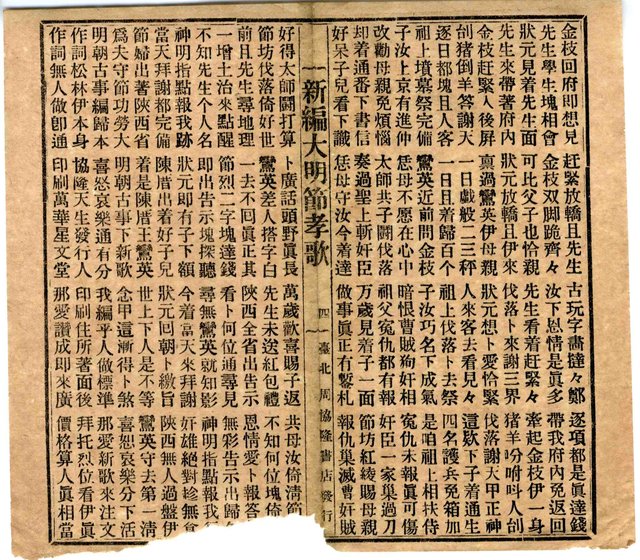 金枝回府即想見 趕緊放轎且先生 古玩字畫撻々鄭 逐項都是眞達錢
先生學生塊相會 金枝双脚跪齊々 汝下恩情是眞多 帶我府內免返回
狀元見着先生面 可比父子也恰親 先生看着趕緊々 牽起金枝伊一身
先生來帶著府內 狀元放轎且伊來 伐落卜來謝三界 猪羊吩咐叫人刣
金枝趕緊入後屏 稟過鸞英伊母親 狀元想卜愛恰緊 伐落謝天甲正神
刣猪倒羊答謝天 一日戱般二三秤 人來客去看見々 這欵下子着通生
逐日都塊且人客 一日且着歸百个 祖上伐落卜去祭 四名護兵免箱加
祖上墳墓祭完備 鸞英近前問金枝 子汝巧名下成氣 是咱祖上相扶侍
子汝上京有進伸 恁母不愿在心中 暗恨曹賊狗奸相 冤仇未報眞可傷
改勸母親免煩惱 太師共子鬪伐落 祖父冤仇都有報 奸臣一家巢過刀
却着通番下書信 奏過聖上斬奸臣 萬歲見着子一面 節坊紅綾賜母親
好呆子兒看下識 恁母守汝今着達 做事眞正有鑿札 報仇巢滅曹奸賊
新編大明節孝歌 四 臺北周協隆書店發行
好得太師鬪打算 卜廣話頭野眞長 萬歲歡喜賜子返 共母汝倚清節
節坊伐落倚好世 鸞英差人搭字白 先生未送紅包禮 不知何位塊倚
前且先生尋地理 一去不回眞正其 陝西全省出告示 恩情愛卜報答
一增土治來點醒 節烈二字塊達錢 看卜何位通尋見 無彩告示出歸
不知先生个人名 即出告示塊探聽 尋無鸞英就知影 神明指點報我
神明指點報我跡 狀元即有子下額 今着當天來拜謝 奸雄絕對趁無食
當天拜謝都完備 着是陳厝王鸞英 狀元回朝卜繳旨 陝西無人過盤伊
節婦出著陝西省 陳厝出着好子兒 世上下人是不等 鸞英守去第一淸
爲夫守節功勞大 明朝古事下新歌 念甲這漸得卜煞 喜恕哀樂分下活
明朝古事編歸本 喜怒哀樂通有分 我編乎人做標準 那愛新歌來注文
作詞松林伊本身 協隆天生發行人 印刷住所著面後 拜托烈位看伊眞
作詞無人做卽通 印刷萬華星文堂 那愛讚成即來廣 價格算人眞相當